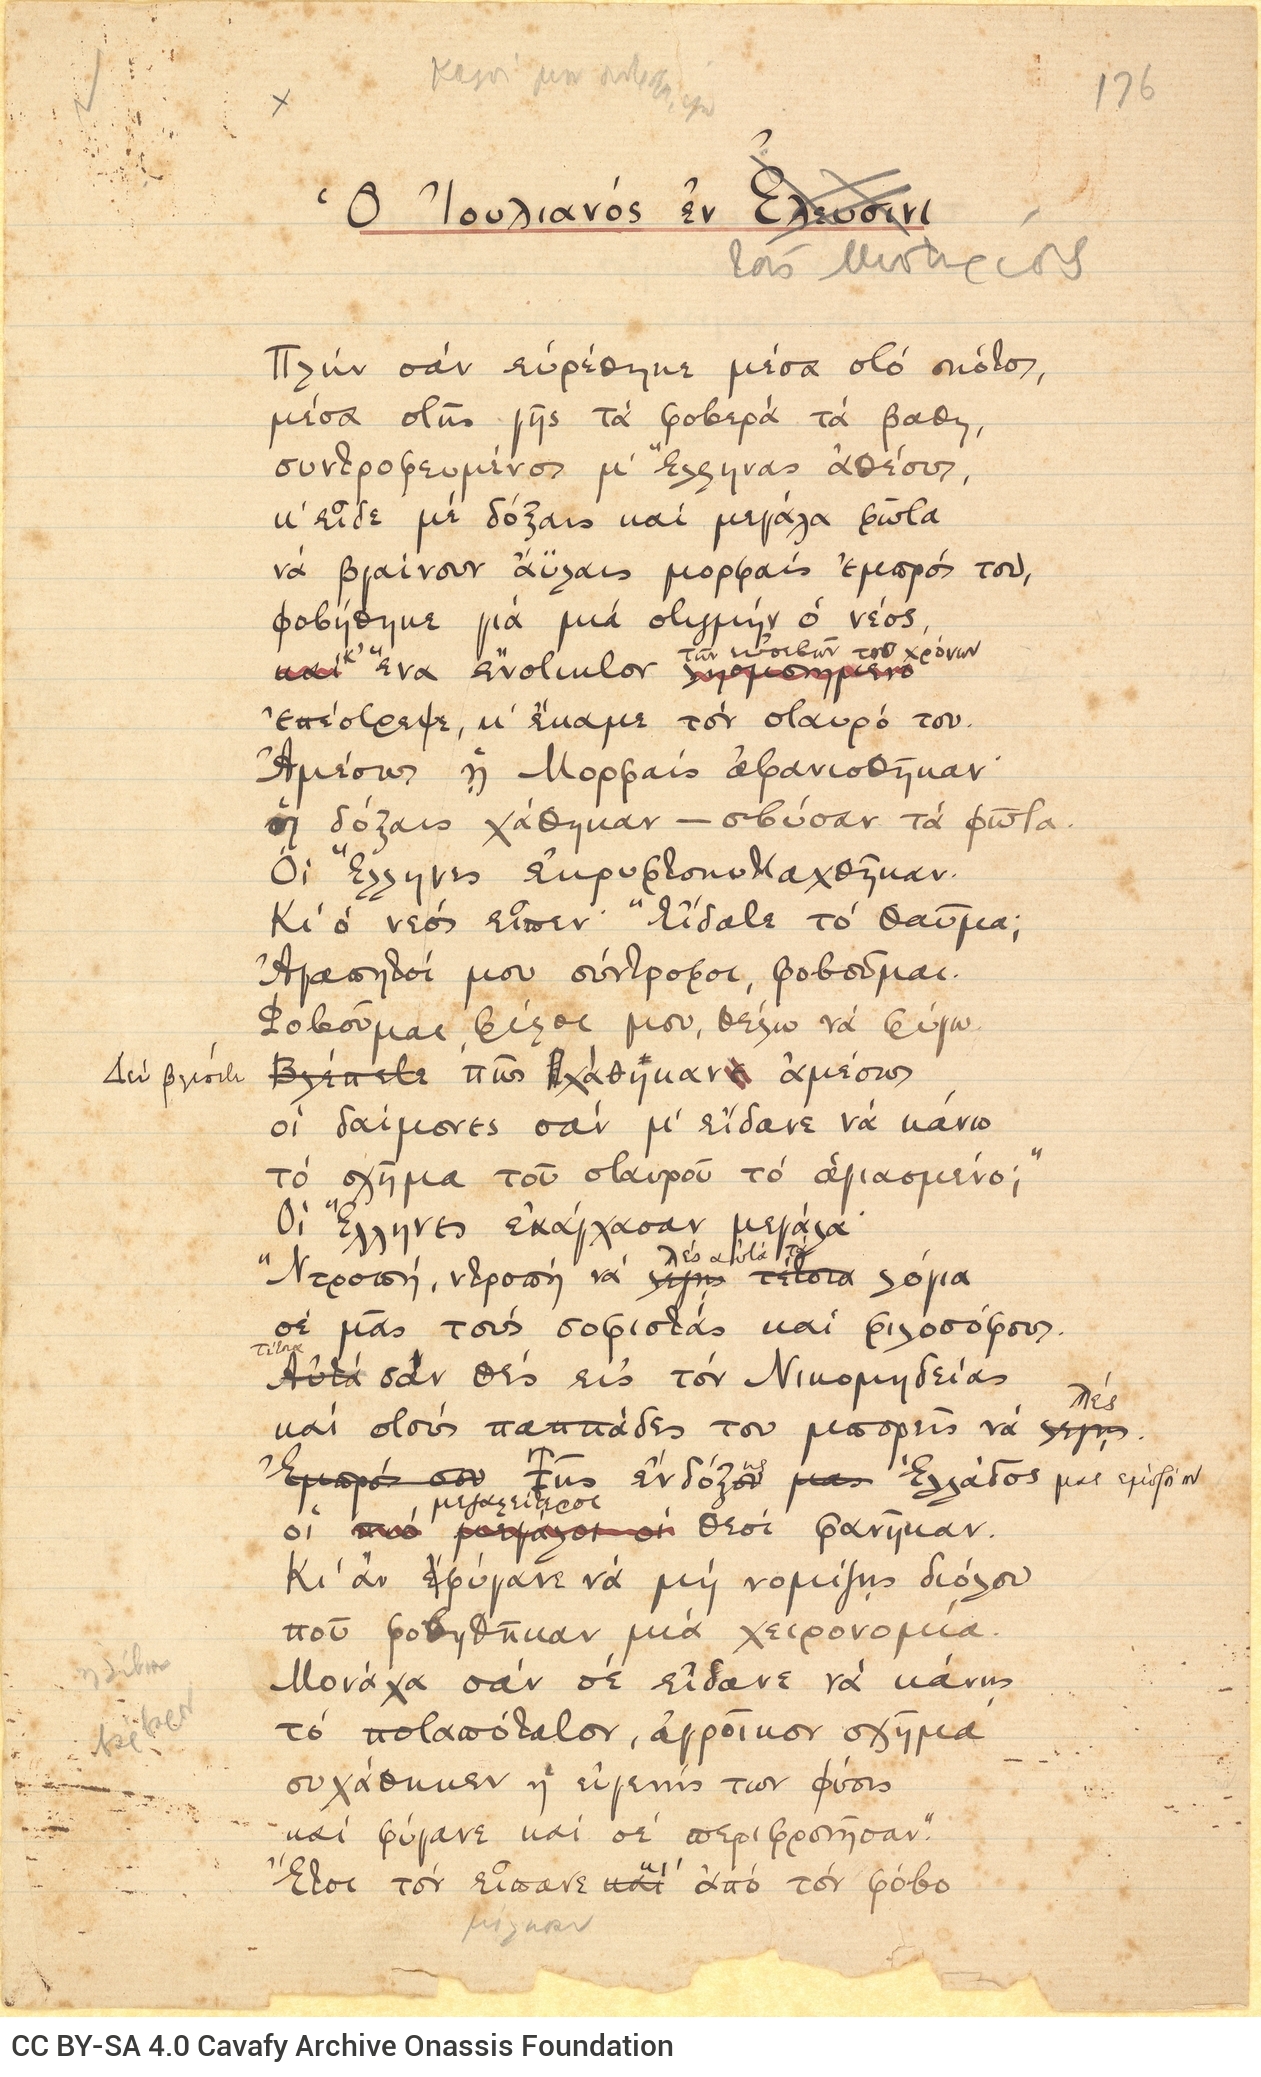 176
Ὁ Ἰουλιανός ἐν Ἐλευσῖνι
τοῖς Μυστηρίοις
Πλήν σάν εὑρέθηκε μέσα στό σκότος,
μέσα στῆς γῆς τά φοβερά τά βαθη,
συντροφευμένος μ' Ἕλληνας ἀθέους,
κ' εἶδε μέ δόξαις καί μεγάλα φῶτα
νά βγαίνουν ἄϋλαις μορφαίς ἐμπρός του,
φοβήθηκε γιά μιά στιγμήν ὁ νέος,
των εὐσεβῶν του χρόνων
καί κ' ἕνα ἔνστικτον λησμονημένο
ἐπέστρεψε, κ' ἔκαμε τόν σταυρό του.
Ἀμέσως ᾑ Μορφαίς ἀφανισθῆκαν·
ᾑ δόξαις χάθηκαν — σβύσαν τά φῶτα.
Οἱ Ἕλληνες ἐκρυφτοκυτταχθῆκαν.
Κι' ὁ νεός εἶπεν· "Εἴδατε τό θαῦμα;
Ἀγαπητοί μου σύντροφοι, φοβοῦμαι.
Φοβοῦμαι, φίλοι μου, θέλω νά φύγω.
Δεν βλέπετε Βλέπετε πῶς χάθηκαν ἀμέσως
οἱ δαίμονες σάν μ' εἴδανε νά κάνω
τό σχῆμα τοῦ σταυροῦ τό ἁγιασμένο;"
Οἱ Ἕλληνες ἐκάγχασαν μεγάλα·
λές αὐτά τά
"Ντροπή, ντροπή νά λέγῃς τέτοια λόγια
σέ μᾶς τούς σοφιστάς καί φιλοσόφους.
τέτοια
Αὐτά σάν θές εἰς τόν Νικομηδείας
λές
καί στούς παππάδες του μπορεῖς νά λέγῃς.
Ἐμπρός σου Τῆς ἐνδόξου μας Ἑλλάδος μας εμπρός σου
μεγαλείτεροι
οἱ πιό μεγάλοι οἱ θεοί φανῆκαν.
Κι' ἄν ἐφύγανε νά μή νομίζῃς διόλου
ποῦ φοβηθῆκαν μιά χειρονομία.
Μονάχα σάν σέ εἴδανε νά κάνῃς
τό ποταπότατον, ἀγροῖκον σχῆμα
συχάθηκεν ἡ εὐγενής των φύσις
καί φύγανε καί σέ περιφρονῆσαν."
Ἔτσι τόν εἴπανε καί ἀπό τόν φόβο
CC BY-SA 4.0 Cavafy Archive Onassis Foundation